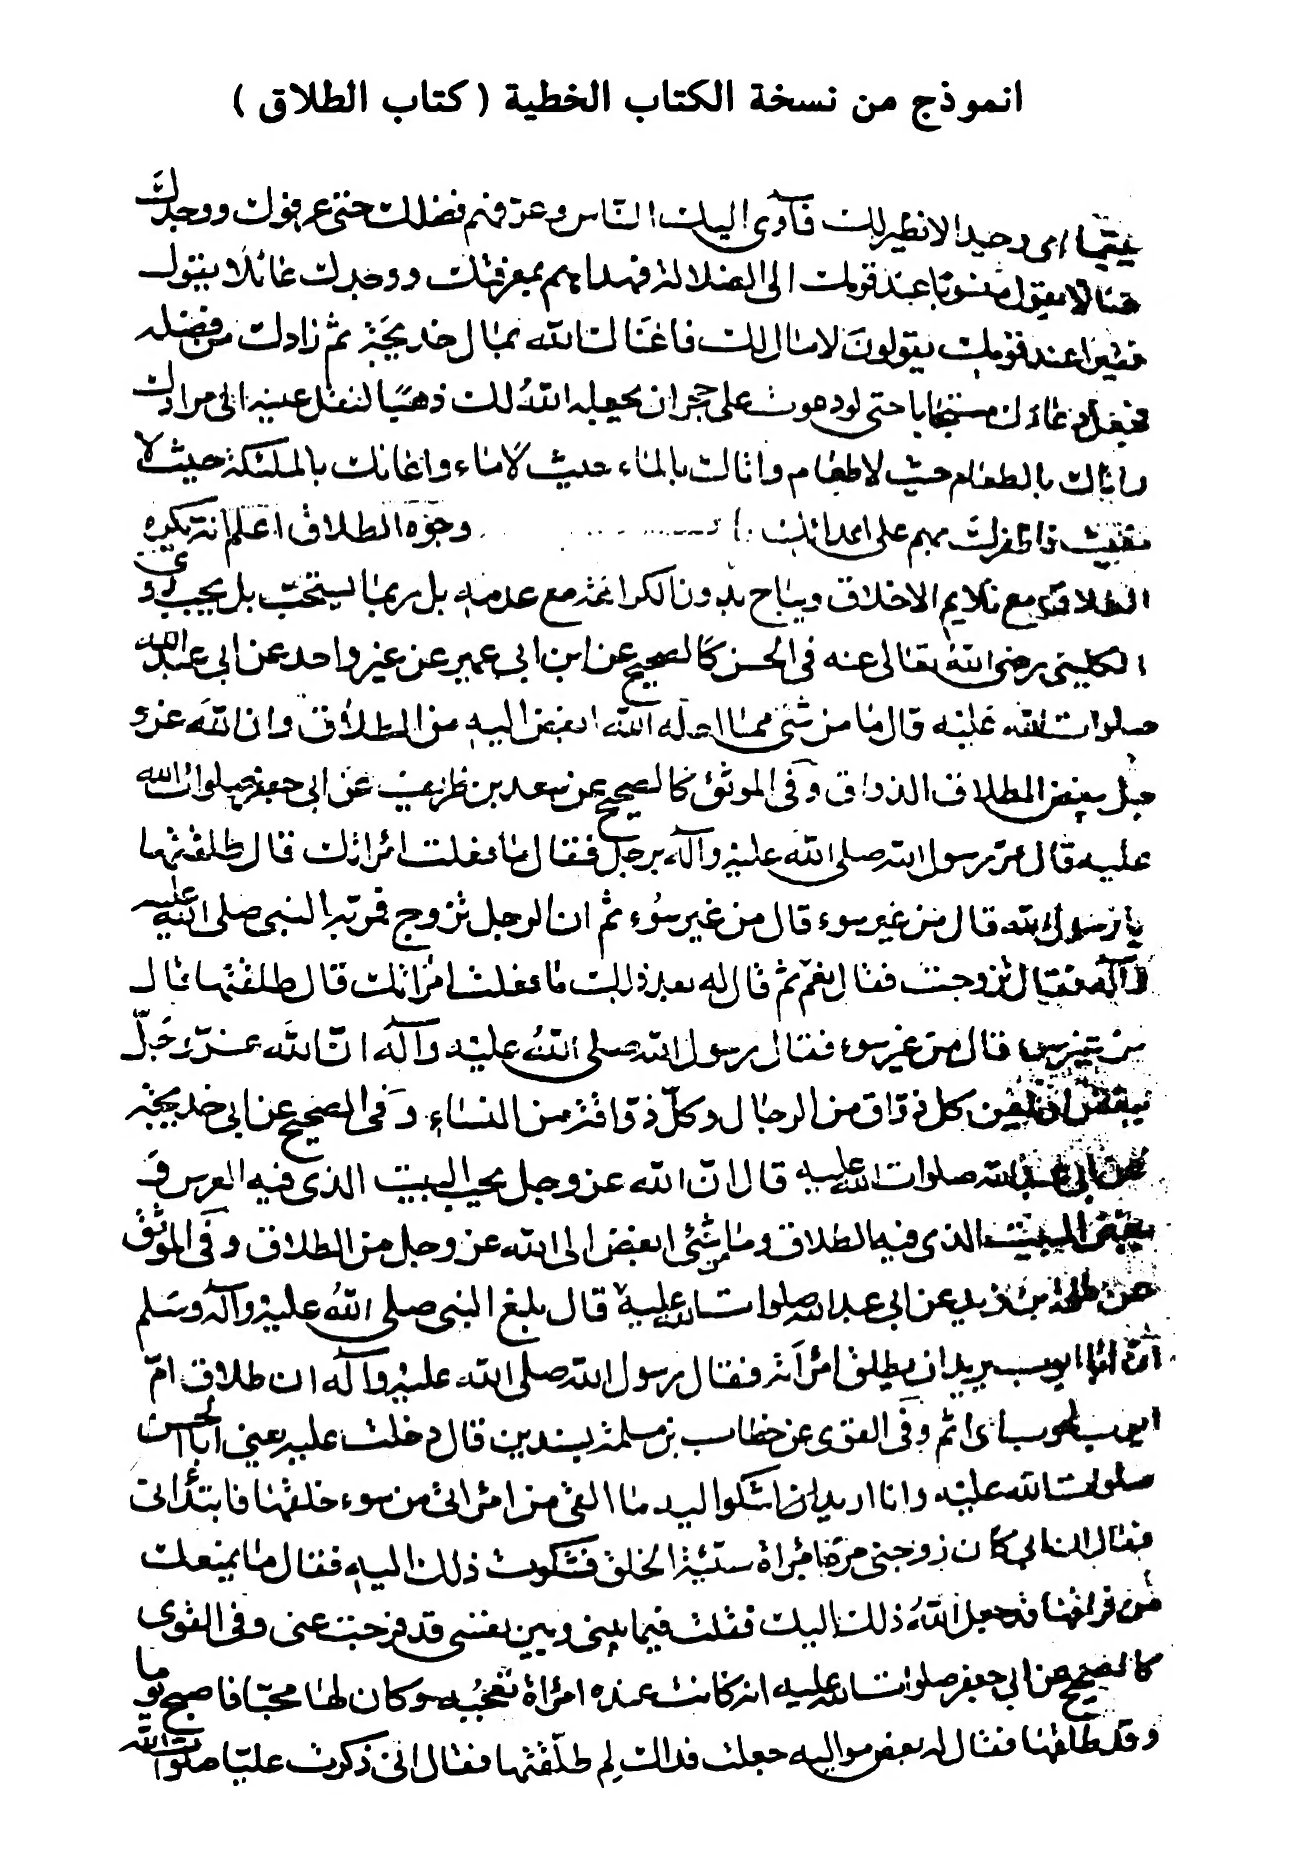 انموذج من نسخة الكتاب الخطية ( كتاب الطلاق )
يتيما اى وحيدا لا نظير لك فآوى اليك الناس وعرفهم فضلك حتى عرفوك ووجدك
ضالا يقول منسوبا عند قومك الى الضلالة فهداهم بمعرفتك ووجدك عائلا يقول
فقيرا عند قومك يقولون لا مال لك فاغناك الله بمال خديجة ثم زادك من فضله
فجعل دعائك مستجابا حتى لو دعوت على حجر ان يجعله الله لك ذهبا لنقل عينه الى مرادك
واتاك بالطعام حيث لا طعام واتاك بالماء حيث لا ماء واغاثك بالملئكة حيث لا
مغيث فاظفرك بهم على اعدائك وجوه الطلاق اعلم انه يكره
الطلاق مع تلايم الاخلاق ويباح بدون الكراهة مع عدمه بل ربما يستحب بل يجب روى
الكلينى رضى الله تعالى عنه فى الحسن كالصحيح عن ابن ابى عمير عن غير واحد عن ابى عبد الله
صلوات الله عليه قال ما من شئ مما احله الله ابغض اليه من الطلاق وان الله عز و
جل يبغض المطلاق الذواق وفى الموثق كالصحيح عن سعد بن طريف عن ابى جعفر صلوات الله
عليه قال مر رسول الله صلى الله عليه وآله برجل فقال ما فعلت امرأتك قال طلقتها
يا رسول الله قال من غير سوء قال من غير سوء ثم ان الرجل تزوج فمر به النبى صلى الله عليه
وآله فقال تزوجت فقال نعم ثم قال له بعد ذلك ما فعلت امرأتك قال طلقتها قال
من غير سوء قال من غير سوء فقال رسول الله صلى الله عليه وآله ان الله عز وجل
يبغض او يلعن كل ذواق من الرجال وكل ذواقة من النساء وفى الصحيح عن ابى خديجة
عن ابى عبد الله صلوات الله عليه قال ان الله عز وجل يحب البيت الذى فيه العرس و
يبغض البيت الذى فيه الطلاق وما من شئ ابغض الى الله عز وجل من الطلاق وفى الموثق
عن طلحة بن زيد عن ابى عبد الله صلوات الله عليه قال بلغ النبى صلى الله عليه وآله وسلم
ان ابا ايوب يريد ان يطلق امرأته فقال رسول الله صلى الله عليه وآله ان طلاق ام
ايوب لحوب اى اثم وفى القوى عن خطاب بن سلمة بسندين قال دخلت عليه يعنى ابا الحسن
صلوات الله عليه وانا اريد ان اشكوا اليه ما القى من امرأتى من سوء خلقها فابتدأنى
فقال ان ابى كان زوجنى مرة امرأة سيئة الخلق فشكوت ذلك اليه فقال ما يمنعك
من فراقها قد جعل الله ذلك اليك فقلت فيما بينى وبين نفسى قد فرجت عنى وفى القوى
كالصحيح عن ابى جعفر صلوات الله عليه انه كانت عنده امرأة تعجبه وكان لها محبا فاصبح يوما
وقد طلقها فقال له بعض مواليه جعلت فداك لم طلقتها فقال انى ذكرت عليا صلوات الله